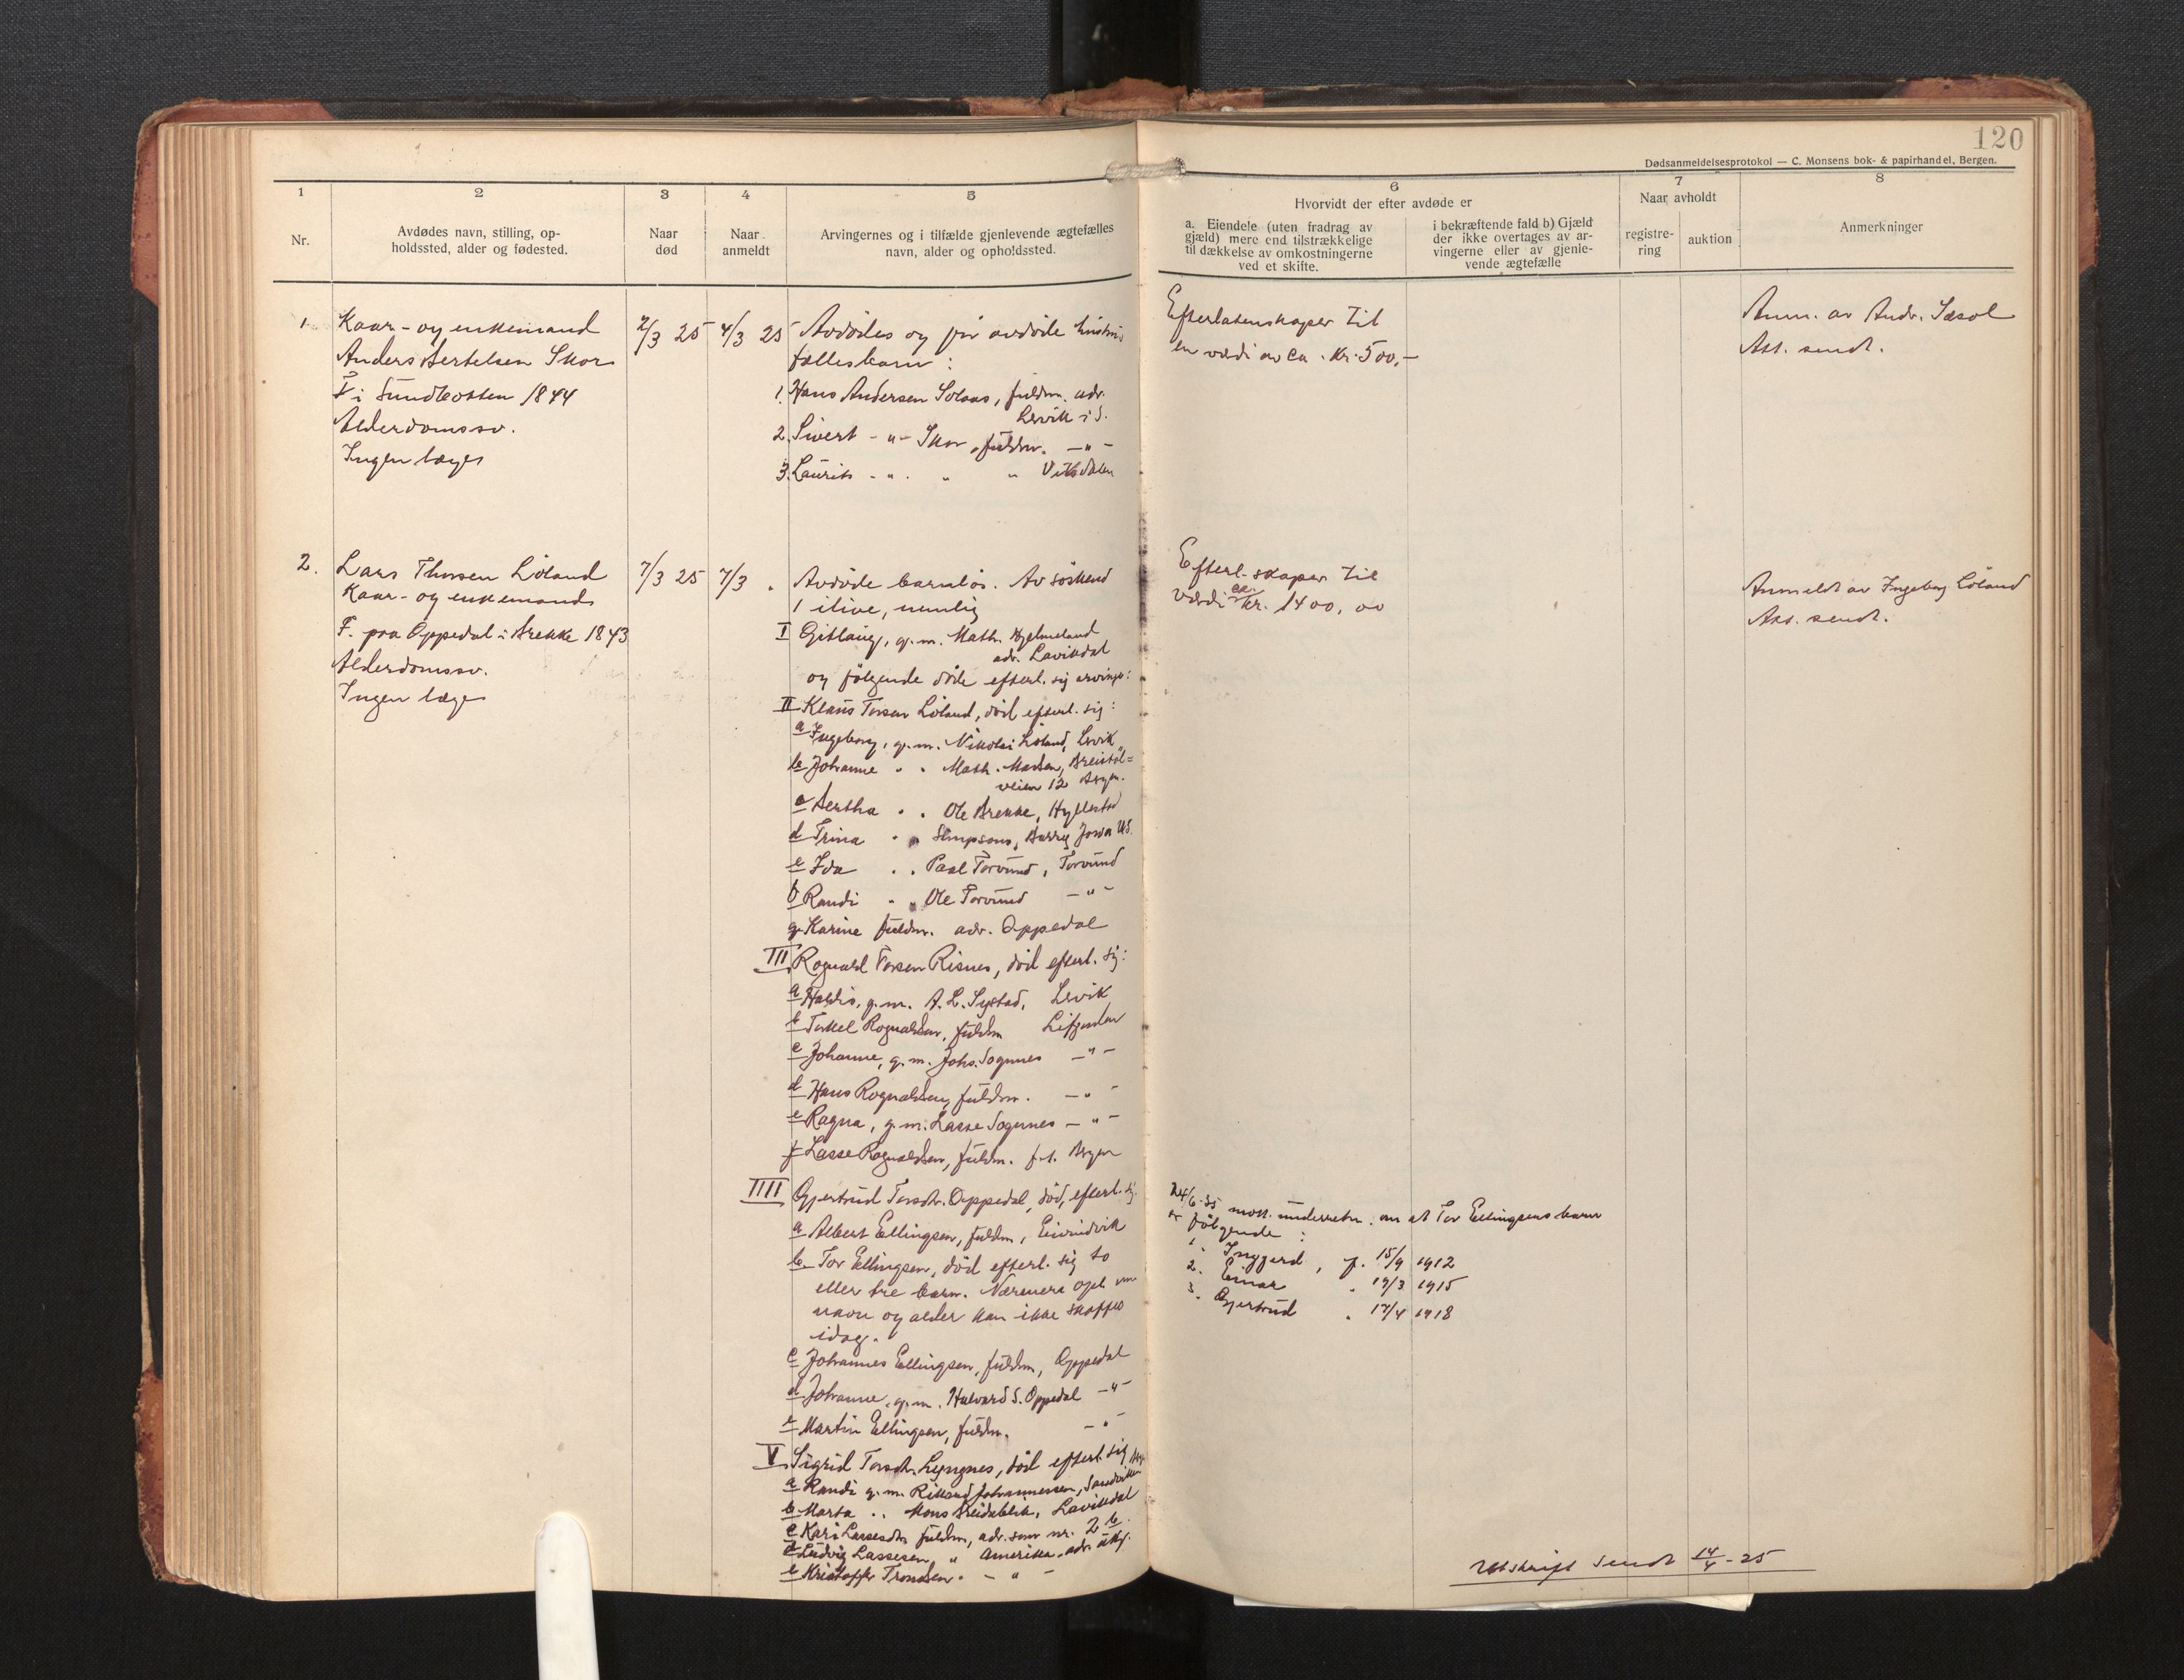 120
Dødsanmeldelsesprotokol — C. Monsens bok- & papirhandel, Bergen.
1
2
3
4
5
6
7
8
Nr.
Avdødes navn, stilling, op-
holdssted, alder og fødested.
Naar
død
Naar
anmeldt
Arvingernes og i tilfælde gjenlevende ægtefælles
navn, alder og opholdssted.
Hvorvidt der efter avdøde er
a. Eiendele (uten fradrag av
gjæld) mere end tilstrækkelige
til dækkelse av omkostningerne
ved et skifte.
i bekræftende fald b) Gjæld
der ikke overtages av ar-
vingerne eller av gjenle-
vende ægtefælle
Naar avholdt
registre-
ring
auktion
Anmerkninger
1.
Kaar- og enkemand
Anders Bertelsen Skor
F. i Sundbotten 1844
Alderdomssv.
Ingen læge
2/3 25
4/3 25
Avdødes og før avdøde hustrus
fællesbarn:
1. Hans Andersen Solaas, fuldm. adr.
Lervik i S.
2. Sivert -"- Skor, fuldm. -"-
3. Laurits - " - " " Viksdalen
Efterlatenskaper til
en værdi av ca. kr. 500,-
Anm. av Andr.
Att. sendt.
2.
Lars Thorsen Löland
Kaar- og enkemand
F. paa Oppedal i Brekke 1843
Alderdomssv.
Ingen læge
7/3 25
7/3 "
Avdøde barnløs. Av söskend
1 ilive, nemlig
I Gitlaug, g.m. Math. Hjelmeland
adr. Lavikdal
og følgende döde efterl. sig arvinger:
II Klaus Torsen Löland, död efterl. sig:
a Ingeborg, g.m. Nikolai Löland, Lervik
b Johanne " " Math. Madsen, Breistöl=
veien 12 Bergen.
c Bertha " " Ole Brekke, Hyllestad
d Trina " " Simpsons, Jowa U.S.
e Ida " " Paal Torvund, Torvund
f Randi " " Ole Torvund -"-
g Karine fuldm. adr. Oppedal
III Rognald Torsen Risnes, död efterl. sig:
a g.m. A. L. Systad, Lervik
b Torkel Rognaldsen, fuldm Lifjorden
c Johanne, g.m. Johs. Sognnes -"-
d Hans Rognaldsen, fuldm. -"-
e Ragna, g.m. Lasse Sognnes -"-
f Lasse Rognaldsen, fuldm. f.t. Bergen
IIII Gjertrud Torsdtr. Oppedal, död, efterl. sig
a Albert Ellingsen, fuldm, Eivindvik
b. Tor Ellingsen, död efterl. sig to
eller tre barn. Nærmere opl. om
navn og alder kan ikke skaffes
idag.
c Johannes Ellingsen, fuldm, Oppedal
d Johanne, g.m. Halvard S. Oppedal -"-
e Martin Ellingsen, fuldm. -"-
V Sigrid Torsdtr. Lyngnes, död efterl. sig
a Randi g.m. Rikard Johannessen, Sandviken
b Marta " " Mons Breidablik, Lavikdal
c Kari Lassesdtr fuldm, adr. som nr. 2 b.
d Ludvig Lassesen, " Amerika, adr. ukj.
e Kristoffer Tronsen " - " -
Efterl.skaper til
værdi ca. kr. 1400,00
Anmeldt av Ingeborg Löland
Att. sendt.
24/6-35 mott. underretn. om at Tor Ellingsens barn
er følgende:
1. Inggjerd, f. 15/9 1912
2. Einar " 19/3 1915
3. Gjertrud " 17/4 1918
Utskrift sendt 14/4-25